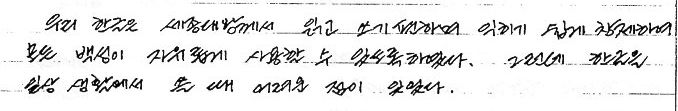 우리 한글은 세종대왕께서 읽고 쓰기 편하며 익히기 쉽게 창제하여
모든 백성이 자유롭게 사용할 수 있도록하였다. 그런데 한글을
일상 생활에서 쓸 때 어려운 점이 있었다.